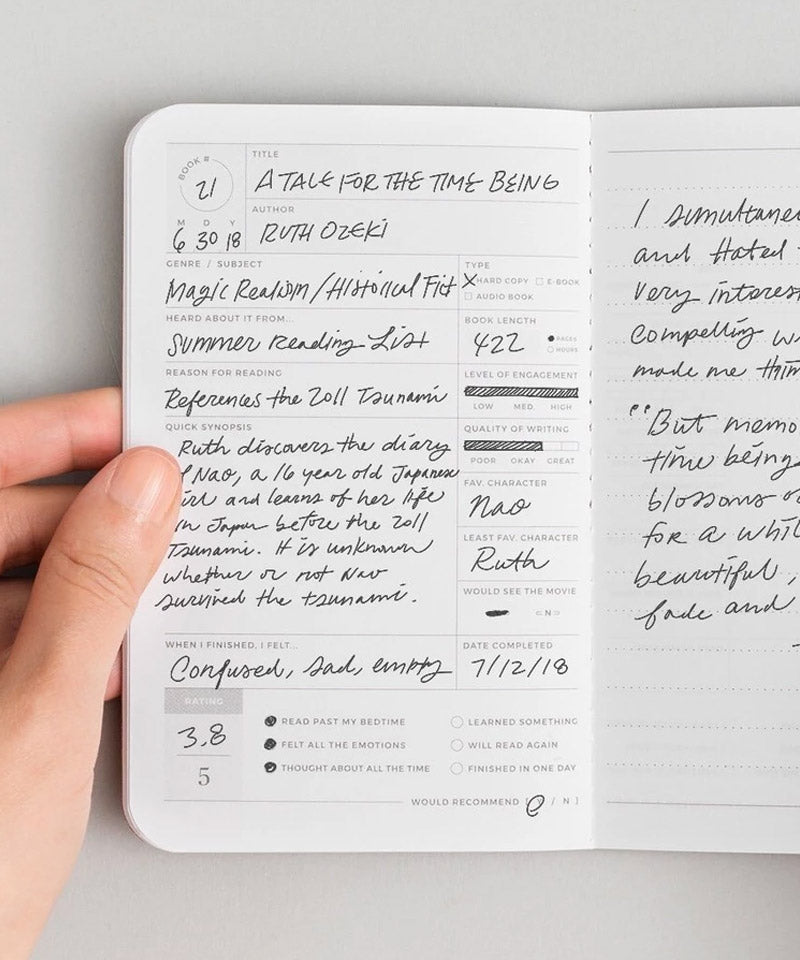 BOOK #
21
M D Y
6 30 18
TITLE
A TALE FOR THE TIME BEING
AUTHOR
RUTH OZEKI
GENRE / SUBJECT
Magic Realism / Historical Fict
TYPE
X HARD COPY E-BOOK
AUDIO BOOK
HEARD ABOUT IT FROM...
Summer Reading List
BOOK LENGTH
422
PAGES
HOURS
REASON FOR READING
References the 2011 Tsunami
LEVEL OF ENGAGEMENT
LOW MED. HIGH
QUICK SYNOPSIS
Ruth discovers the diary
Nao, a 16 year old Japanese
and learns of her life
in Japan before the 2011
Tsunami. It is unknown
whether or not Nao
survived the tsunami.
QUALITY OF WRITING
POOR OKAY GREAT
FAV. CHARACTER
Nao
LEAST FAV. CHARACTER
Ruth
WOULD SEE THE MOVIE
< N >
WHEN I FINISHED, I FELT...
Confused, sad, empty
DATE COMPLETED
7/12/18
RATING
3.8
5
READ PAST MY BEDTIME
FELT ALL THE EMOTIONS
THOUGHT ABOUT ALL THE TIME
LEARNED SOMETHING
WILL READ AGAIN
FINISHED IN ONE DAY
WOULD RECOMMEND [ Y / N ]
I
and Hated
very
compelling
made me
"But
time being
blossoms
for a
beautiful,
fade and